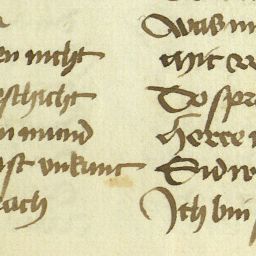 en nicht
eschicht
n mund
ist vnkunt
ach
Was
mit
Do spr
herre
Sid
Ich bin